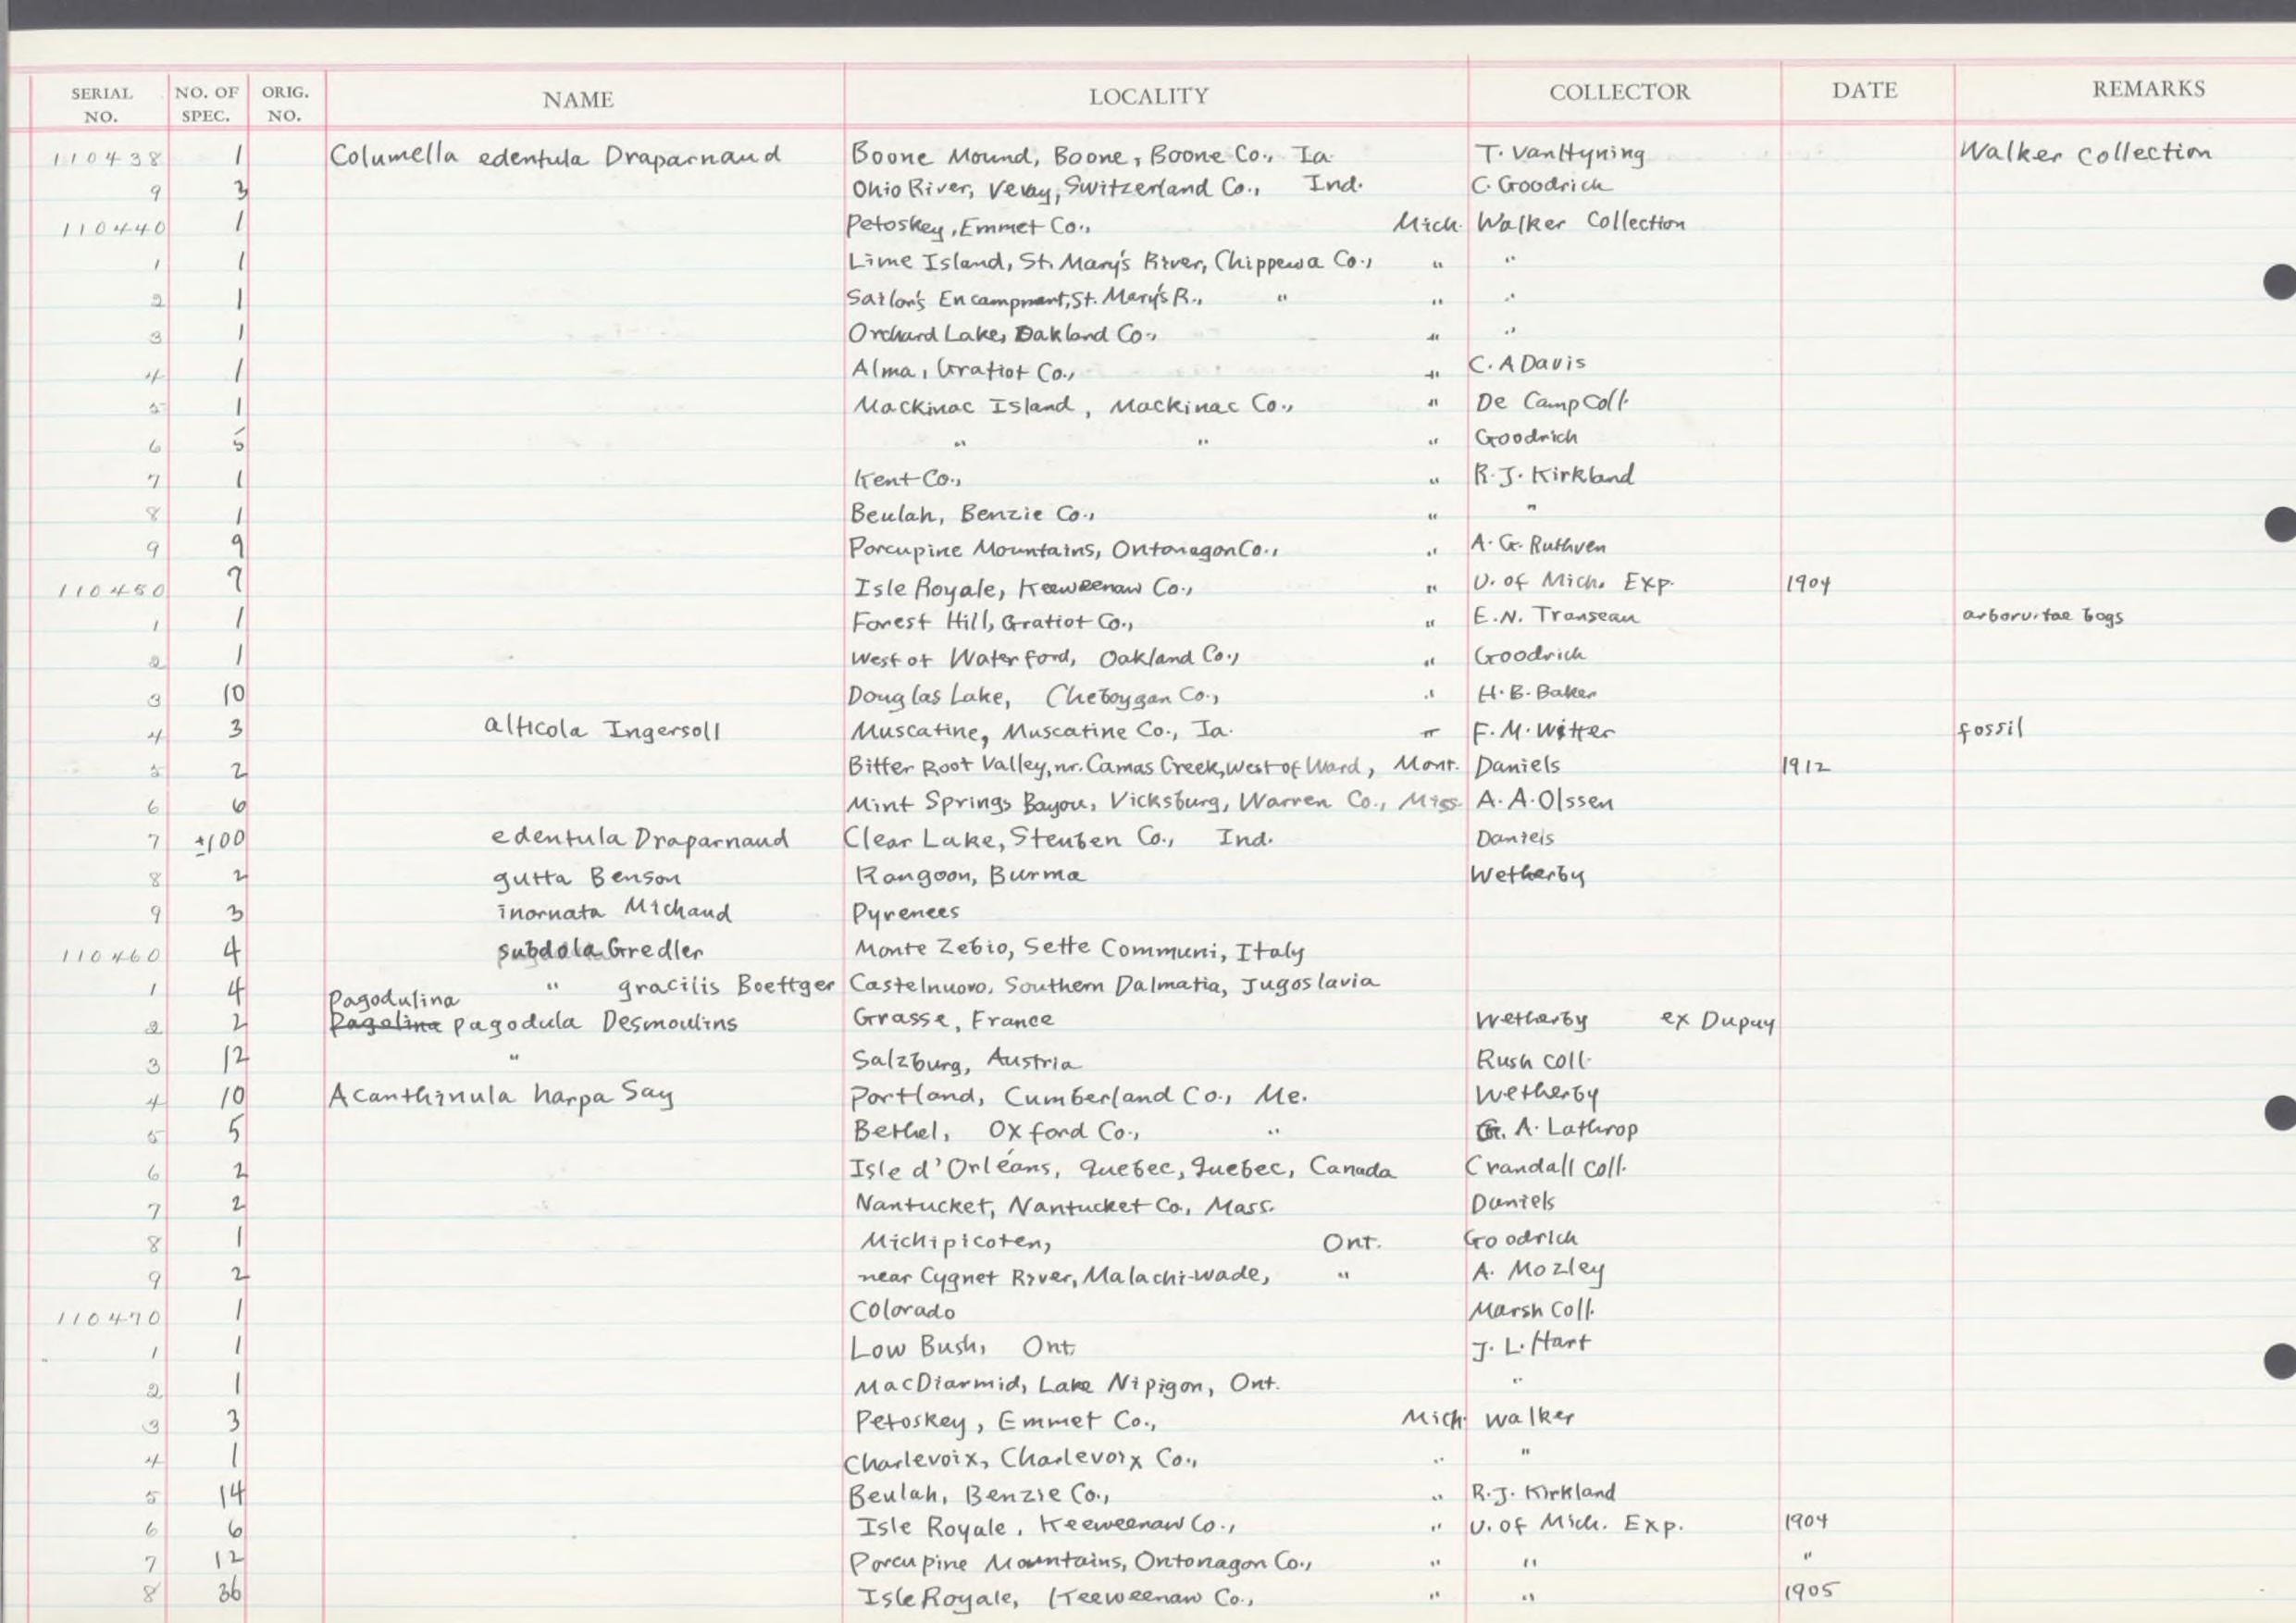 SERIAL NO. NO. OF SPEC. ORIG. NO. NAME LOCALITY COLLECTOR DATE REMARKS
110438 1 Columella edentula Draparnaud Boone Mound, Boone, Boone Co., Ia. T. VanHyning Walker Collection
9 3 Ohio River, Vevay, Switzerland Co., Ind. C. Goodrich
110440 1 Petoskey, Emmet Co., Mich. Walker Collection
1 1 Lime Island, St. Mary's River, Chippewa Co., " "
2 1 Sailor's Encampment, St. Mary's R., " " "
3 1 Orchard Lake, Oakland Co., " "
4 1 Alma, Gratiot Co., " C. A Davis
5 1 Mackinac Island, Mackinac Co., " De Camp Coll.
6 5 " " " Goodrich
7 1 Kent Co., " R. J. Kirkland
8 1 Beulah, Benzie Co., " "
9 9 Porcupine Mountains, Ontonagon Co., " A. G. Ruthven
110450 7 Isle Royale, Keeweenaw Co., " U. of Mich. Exp. 1904
1 1 Forest Hill, Gratiot Co., " E. N. Transeau arborvitae bogs
2 1 West of Waterford, Oakland Co., " Goodrich
3 10 Douglas Lake, Cheboygan Co., " H. B. Baker
4 3 alticola Ingersoll Muscatine, Muscatine Co., Ia. " F. M. Witter fossil
5 2 Bitter Root Valley, nr. Camas Creek, West of Ward, Mont. Daniels 1912
6 6 Mint Springs Bayou, Vicksburg, Warren Co., Miss A. A. Olssen
7 ±100 edentula Draparnaud Clear Lake, Steuben Co., Ind. Daniels
8 2 gutta Benson Rangoon, Burma Wetherby
9 3 inornata Michaud Pyrenees
110460 4 subdola Gredler Monte Zebio, Sette Communi, Italy
1 4 " gracilis Boettger Castelnuovo, Southern Dalmatia, Jugoslavia
Pagodulina
2 2 Pagolina pagodula Desmoulins Grasse, France Wetherby ex Dupuy
3 12 " Salzburg, Austria Rush Coll.
4 10 Acanthinula harpa Say Portland, Cumberland Co., Me. Wetherby
5 5 Bethel, Oxford Co., " G. A. Lathrop
6 2 Isle d'Orléans, Quebec, Quebec, Canada Crandall Coll.
7 2 Nantucket, Nantucket Co., Mass. Daniels
8 1 Michipicoten, Ont. Goodrich
9 2 near Cygnet River, Malachi-Wade, " A. Mozley
110470 1 Colorado Marsh Coll.
1 1 Low Bush, Ont. J. L. Hart
2 1 MacDiarmid, Lake Nipigon, Ont. "
3 3 Petoskey, Emmet Co., Mich. Walker
4 1 Charlevoix, Charlevoix Co., " "
5 14 Beulah, Benzie Co., " R. J. Kirkland
6 6 Isle Royale, Keeweenaw Co., " U. of Mich. Exp. 1904
7 12 Porcupine Mountains, Ontonagon Co., " " "
8 36 Isle Royale, Keeweenaw Co., " " 1905